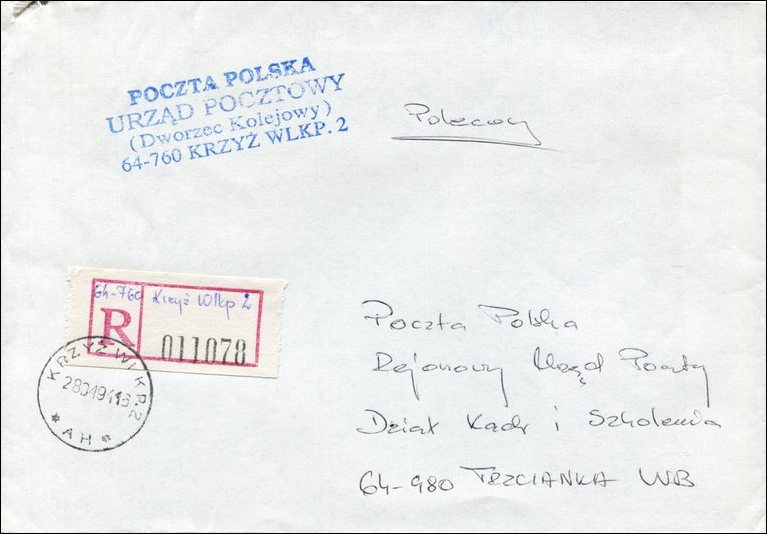 POCZTA POLSKA
URZĄD POCZTOWY
(Dworzec Kolejowy)
64-760 KRZYŻ WLKP. 2
Polecony
64-760 Krzyż Wlkp 2
R
011078
KRZYŻ WLKP. 2
AH
Poczta Polska
Rejonowy Urząd Poczty
Dział Kadr i Szkolenia
64-980 TRZCIANKA WLB